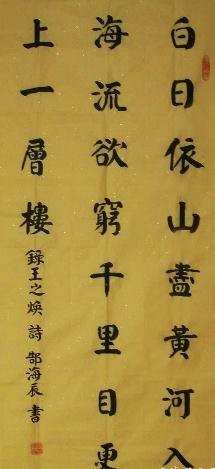 白日依山盡黃河入
海流欲窮千里目更
上一層樓
錄王之煥詩 郜海辰書